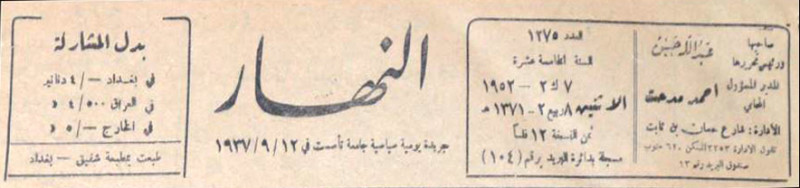 صاحبها
ورئيس تحريرها
عبد الله حسن
المدير المسؤول
المحامي
احمد مدحت
الادارة : شارع حسان بن ثابت
تلفون الادارة ٣٢٥٣ المسكن ٦٤٠ جنوب
صندوق البريد رقم ١٣
العدد ١٢٧٥
السنة الخامسة عشرة
٧ ك٢ - ١٩٥٢
الاثنين ٨ ربيع ٢ - ١٣٧١ هـ
ثمن النسخة ١٢ فلساً
مسجلة بدائرة البريد برقم (١٠٤)
النهار
جريدة يومية سياسية جامعة تأسست في ١٩٣٧/٩/١٢
بدل المشاركة
في بغداد -/٤ دنانير
في العراق ٤/٥٠٠ د
في الخارج -/٥ د
طبعت بمطبعة شفيق - بغداد